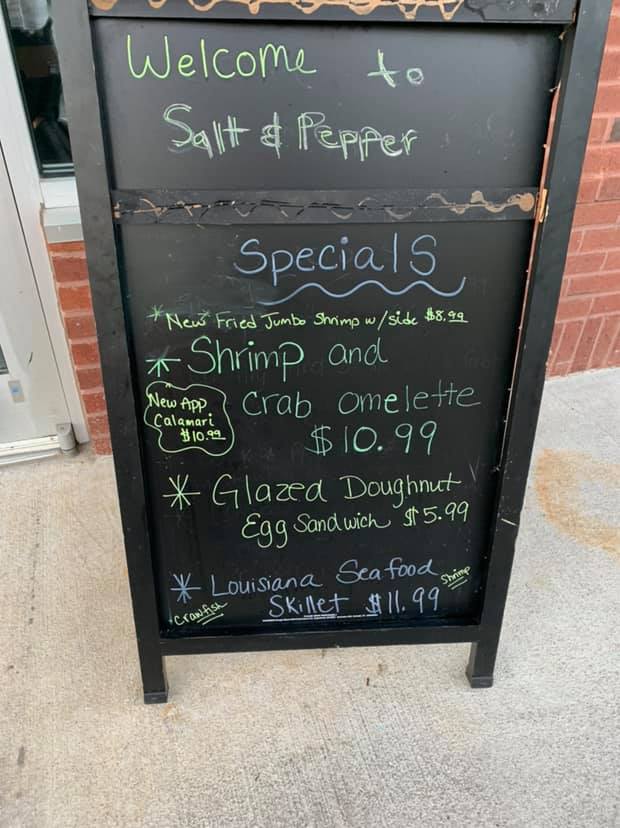 Welcome to
Salt & Pepper
Specials
* New* Fried Jumbo Shrimp w/side $8.99
* Shrimp and
Crab omelette
$10.99
New App
Calamari
$10.99
* Glazed Doughnut
Egg Sandwich $5.99
* Louisiana Seafood
Skillet $11.99
Shrimp
*crawfish